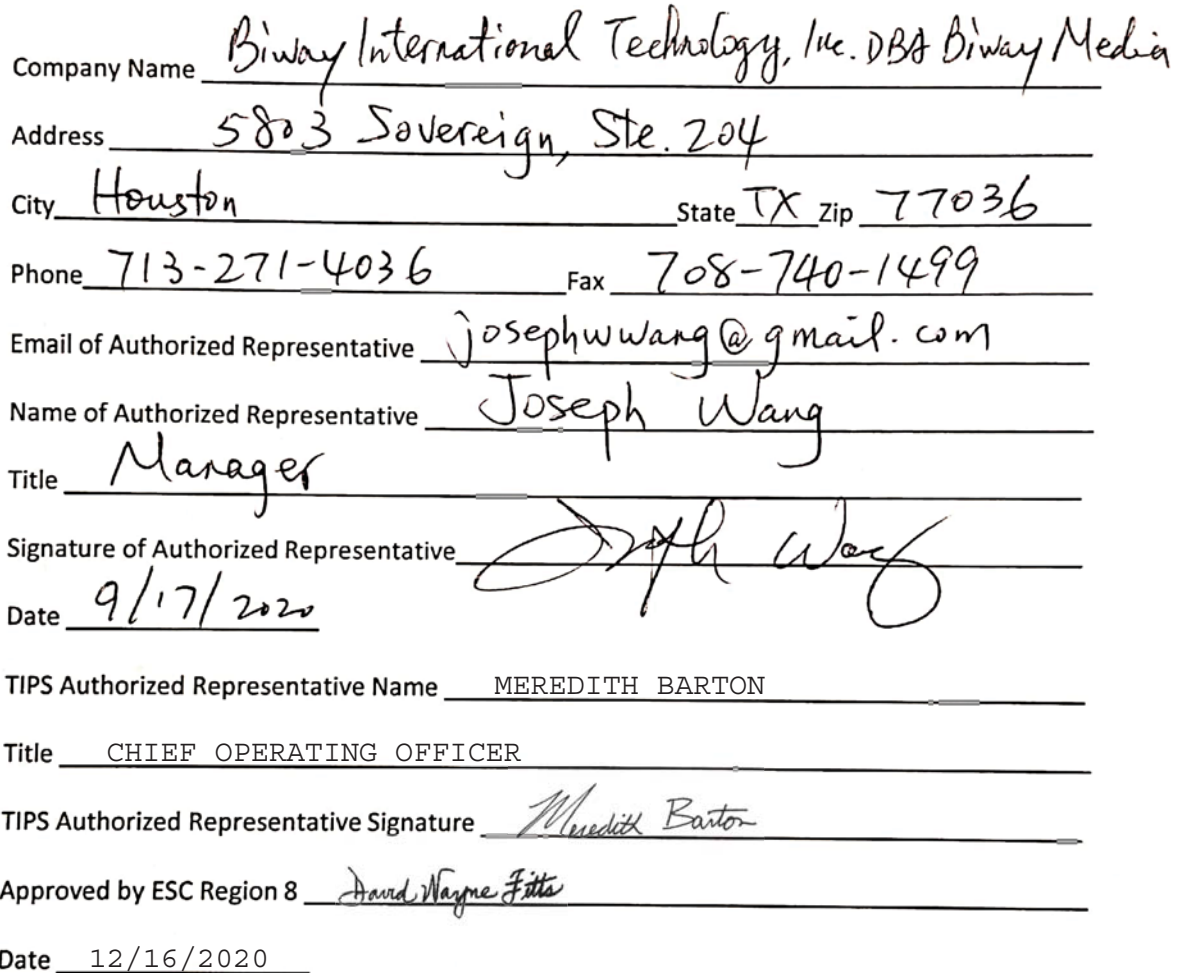 Company Name Biway International Technology, Inc. DBA Biway Media
Address 5803 Sovereign, Ste. 204
City Houston State TX Zip 77036
Phone 713-271-4036 Fax 708-740-1499
Email of Authorized Representative josephwwang@gmail.com
Name of Authorized Representative Joseph Wang
Title Manager
Signature of Authorized Representative Joseph Wang
Date 9/17/2020
TIPS Authorized Representative Name MEREDITH BARTON
Title CHIEF OPERATING OFFICER
TIPS Authorized Representative Signature Meredith Barton
Approved by ESC Region 8 David Wayne Fitts
Date 12/16/2020